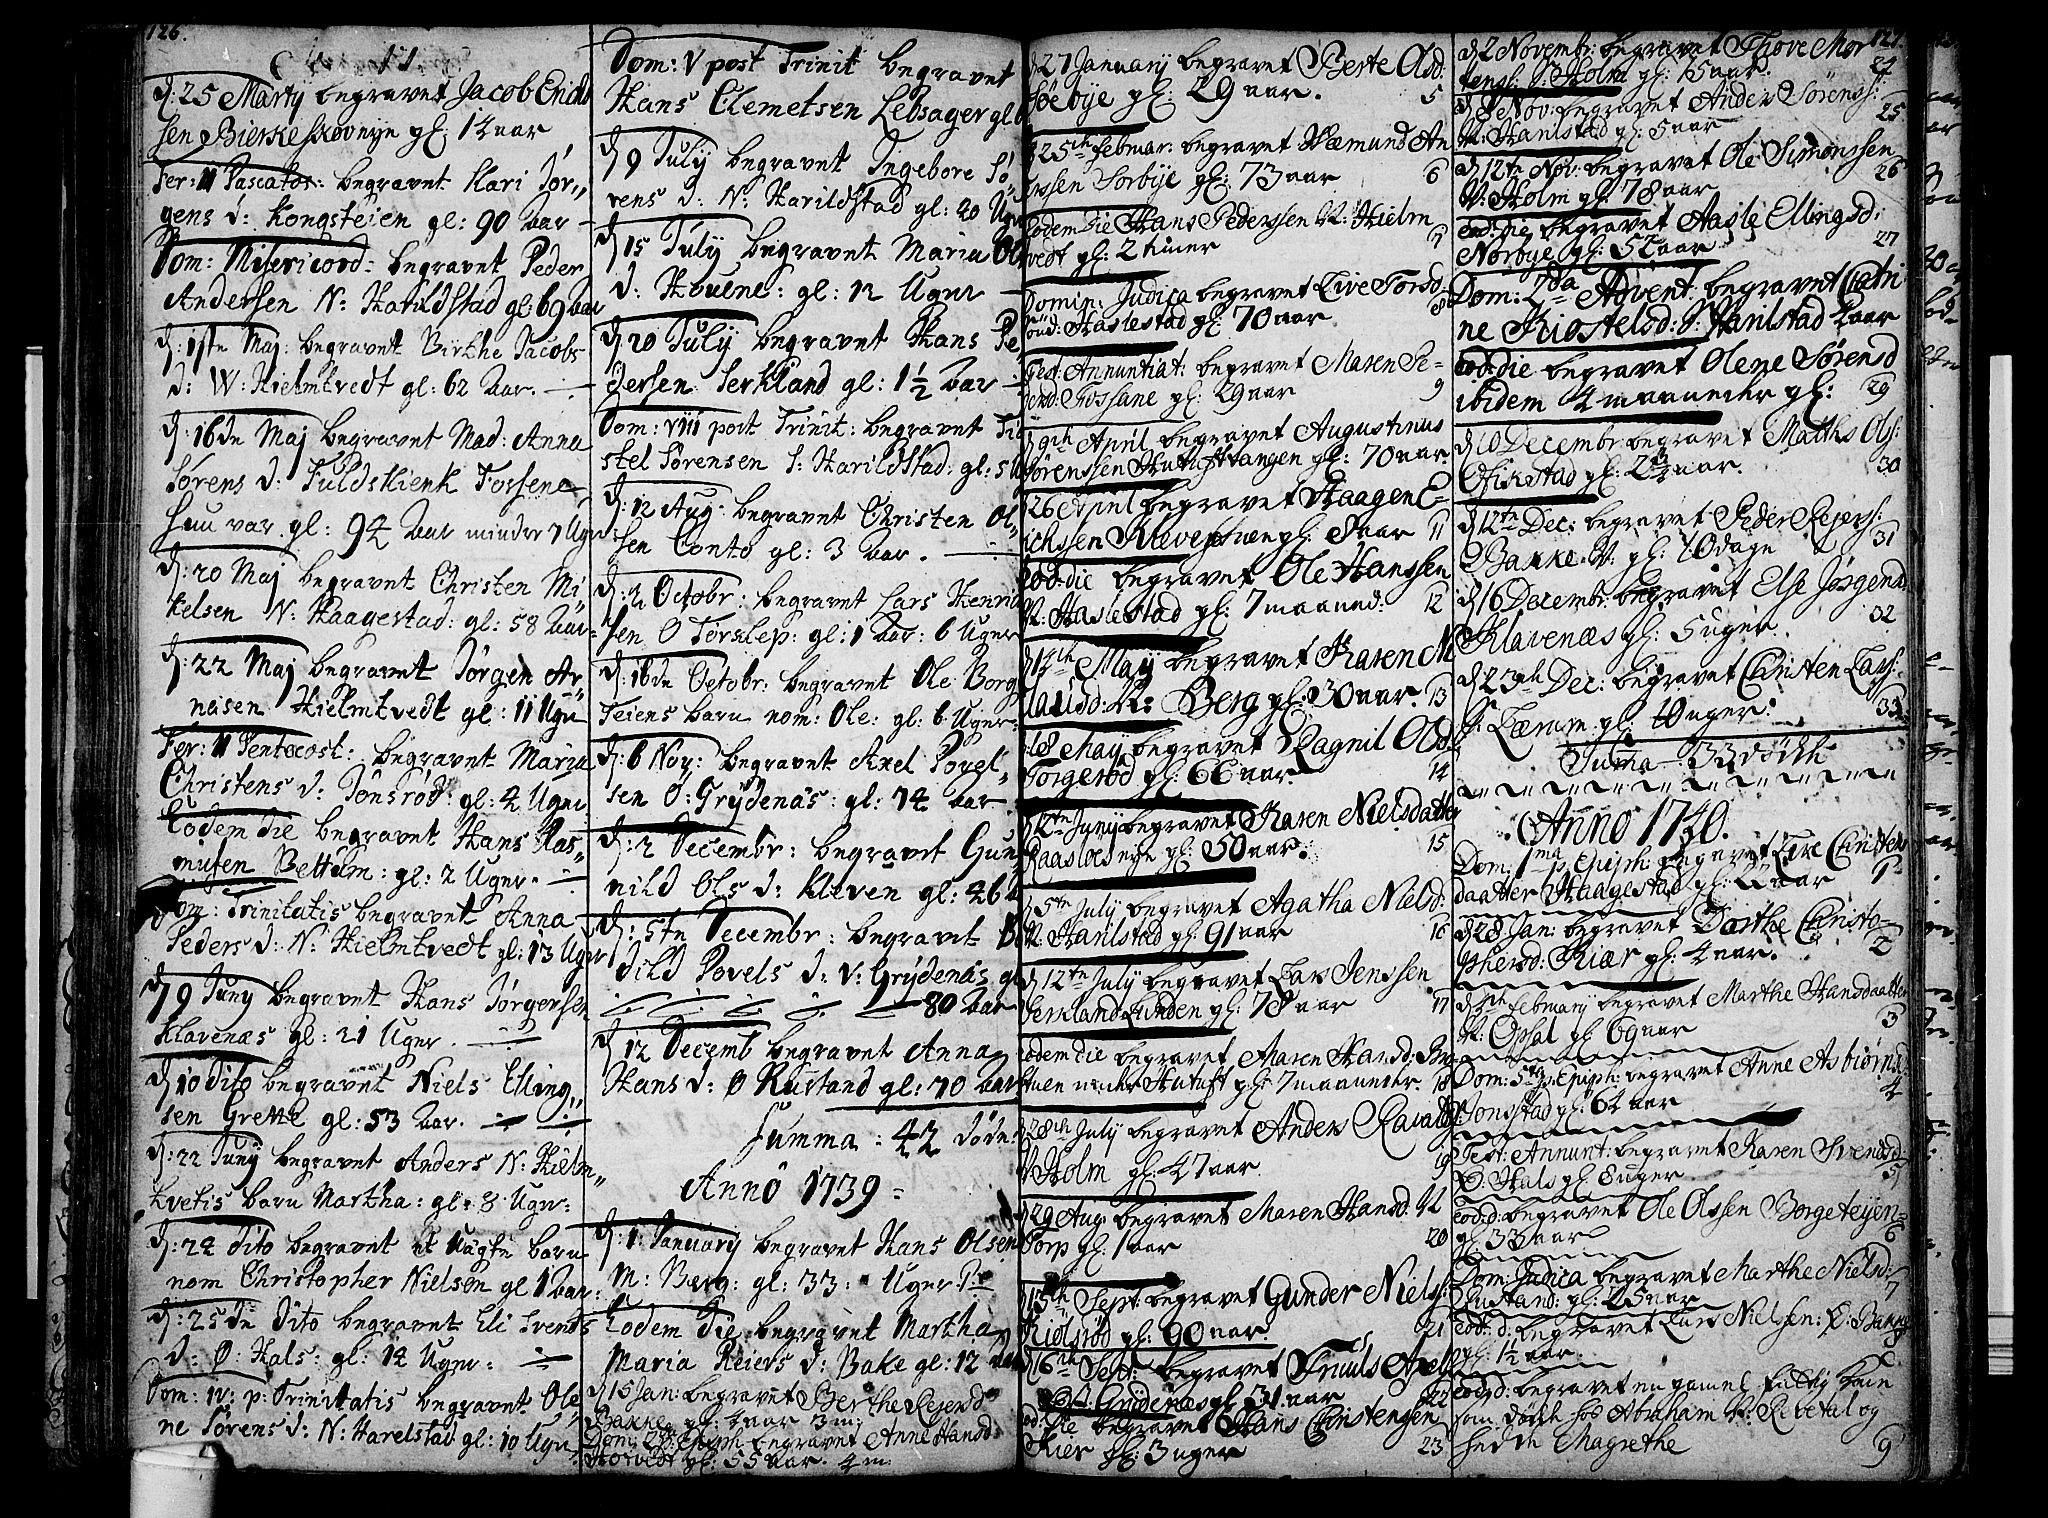 126.
d: 25 Martij begravet Jacob Ends
sen Bierkeskovneye gl: 12 aar
Fer: II Pascatos: begravet Kari Jør„
gens d: Kongsteien gl: 90 Aar
Dom: Misericord: begravet Peder
Andersen N: Harildstad gl: 69 Aar
d: 1ste Maj: begravet Birthe Jacobs
d: W: Hielmtvedt gl: 62 Aar.
d: 16de Maj begravet Mad: Anna
Sørens d: Fuldskienk Fossene
huu var gl: 94 Aar minder 7 Ugur
d: 20 Maj begravet Christen Mi
kelsen N: Haagestad: gl: 58 Aar
d: 22 Maj begravet Jørgen Ar„
neisen Hielmtvedt gl: 11 Ugur
Fer: II Pentecost: begravet Maria
Christens d: Jonsrød: gl: 4 Ugur
Eodem die begravet Hans Ras„
musen Bettum: gl: 2 Ugur.
Dom: Trinitatis begravet Anna
Peders d: N: Hielmtvedt gl: 13 Ugur
d 9 Junÿ begravet Hans Jørgensen
Klavenæs gl: 21 Ugur.
d 10 dito begravet Niels Elling„
sen Grette gl: 53 Aar.
d: 22 Junÿ begravet Anders N: Hielm„
tvetis barn Martha: gl: 8 Ugur.
d: 24 dito begravet et Uægte barn
nom Christopher Nielsen gl 1 Aar.
d: 25 de dito begravet Eli Svends
d: Ø: Hals: gl: 14 Ugur:
Dom: IV: p: Trinitatis begravet Ole
ne Sørens d: N: Harelstad gl: 10 Ugur
Dom: V post Trinit begravet
Hans Clemetsen Lebsager gl
d 9 Julÿ begravet Ingebore Sø„
rens d: N: Harildstad gl: 20 Ugur
d 15 Julÿ begravet Maria Ol
d: Houene: gl: 12 Ugur
d 20 Julÿ begravet Hans Pe„
dersen Serkland gl: 1½ Aar
Dom: VIII post Trinit: begravet
stel Sørensen S: Harildstad: gl: 5
d: 12 Aug: begravet Christen Ol„
sen Conto gl: 3 Aar.
d: 2 Octobr: begravet Lars Henrik
sen Ø Torslep: gl: 1 Aar: 6 Ugur
d: 16de Octobr: begravet Ole Borg
Teiens barn nom: Ole: gl: 6 Ugur
d: 6 Nov: begravet Axel Povel„
sen Ø: Grÿdenås: gl: 74 Aar
d: 2 Decembr: begravet Gun
nild Ols d: Kleven gl: 46
d: 5te Decembr: begravet B
dild Povels d: V: Grÿdenås gl
80 Aar
d 12 Decemb begravet Anna
Hans d: Ø Rustand gl: 70 Aar
Summa : 42 døde:
Anno 1739
d: 1: Januarÿ begravet Hans Olsen
M: Berg: gl: 33: Ugur
Eodem die begravet Martha
Maria Reiers d: Bake gl: 12
d 15 Jan: begravet Berthe Rejersd
Bakke gl: 2 aar 3 m:
Dom: 2da Epiph begravet Anne Hansd:
gl: 55 aar. 4 m:
d 27 January begravet Berte Olsd
Søebye gl: 29 aar. 5
d 25th Februar: begravet Hæmund An
erssen Sorbÿe gl: 73 aar 6
Eodem Die Hans Pederssen V: Hielm
tvedt gl: 2 timer 7
Domin: Judica begravet Live Torsd
Haslestad gl: 70 aar 8
Fest: Annuntiat: begravet Maren Pe-
dersd: Fossane gl: 29 aar 9
d 9th April begravet Augustinus
Sørenssen Hutuftvangen gl: 70 aar
d 26 April begravet Haagen E-
richssen Klevestuen gl: 8 aar 11
eod: die begravet Ole Hanssen
V: Haslestad gl: 7 maaned: 12
d 14th Maÿ begravet Karen
M: Berg gl: 30 aar. 13
d 18 Maÿ begravet Ragnil Olsd
Torgersød gl: 66 aar. 14
d 12te Junÿ begravet Karen Nielsdatter
Raasloes eye gl: 50 aar. 15
d 5te July begravet Agatha Nielsd:
V: Harilstad gl: 91 aar 16
d 12te July begravet Lars Jenssen
Serkland Lunden gl: 78 aar 17
eodem die begravet Maren Hansd: Br
stuen under Hutuft gl: 7 maaneder. 18
d 28th July begravet Anders
Holm gl: 47 aar 19
d 29 Aug: begravet Maren Hansd: V
Torp gl: 1 aar 20
d 13th Sept: begravet Gunder Nielss:
Kielsrød gl: 90 aar 21
d 16th Sept: begravet Truuls Axel
Grÿdenæs gl 31 aar 22
eod: die begravet Hans Christensen
Kier gl: 3 uger 23
127.
d 2 Novembr: begravet Thove Mor
tens: S: Holm gl: 15 aar. 24
d 8 Nov: begravet Anders Sørenss:
V: Harilstad gl: 5 aar 25
d 12te Nov: begravet Ole Simonssen
V: Holm gl: 78 aar 26
eod: die begravet Aasle Ellingsd:
Norbÿe gl: 52 aar 27
Dom: 2da Advent: begravet Cathri
ne Kiostelsd: S: Harilstad 2 aar
eod: die begravet Olene Sørensd
ibidem 4 maaneder gl: 29
d 10 Decembr: begravet Mathis Ols:
Ofikstad gl: 2¾ aar. 30
d 12te Dec: begravet Peder Rejers:
Bakke V: gl: 10 dage 31
d 16 Decembr: begravet Else Jørgensd
Klavenæs gl: 5 uger. 32
d 23th Dec: begravet Christen Lars:
Lærum gl: 10 uger. 33
Suma 33 dödde
Anno 1740.
Dom: 1ma p: Epiph: begravet Live Christens
daatter Haagestad gl: 22 aar 1
d 28 Jan: begravet Dorthe Christo-
phersd: Kiær gl: 4 aar. 2
d 3th February begravet Marthe Hansdaatter
V: Opsal gl 69 aar 3
Dom: 5ta p: Epiph: begravet Anne Asbiørnsd
Jonsstad gl: 62 aar 4
Fest: Annunt: begravet Karen Svendsd
Ø: Hals gl: 8 uger 5
eod: d: begravet Ole Olssen Borgeteyen
gl: 33 aar 6
Dom: Judica begravet Marthe Nielsd:
Rustand: gl: 25 aar 7
eod: d: begravet Lars Nielsen: Ø: Bakke
gl: 1½ aar 8
eod: d: begravet en gamel fattig
som döde hos Abraham V: Revetal og
hedte Magrethe 9